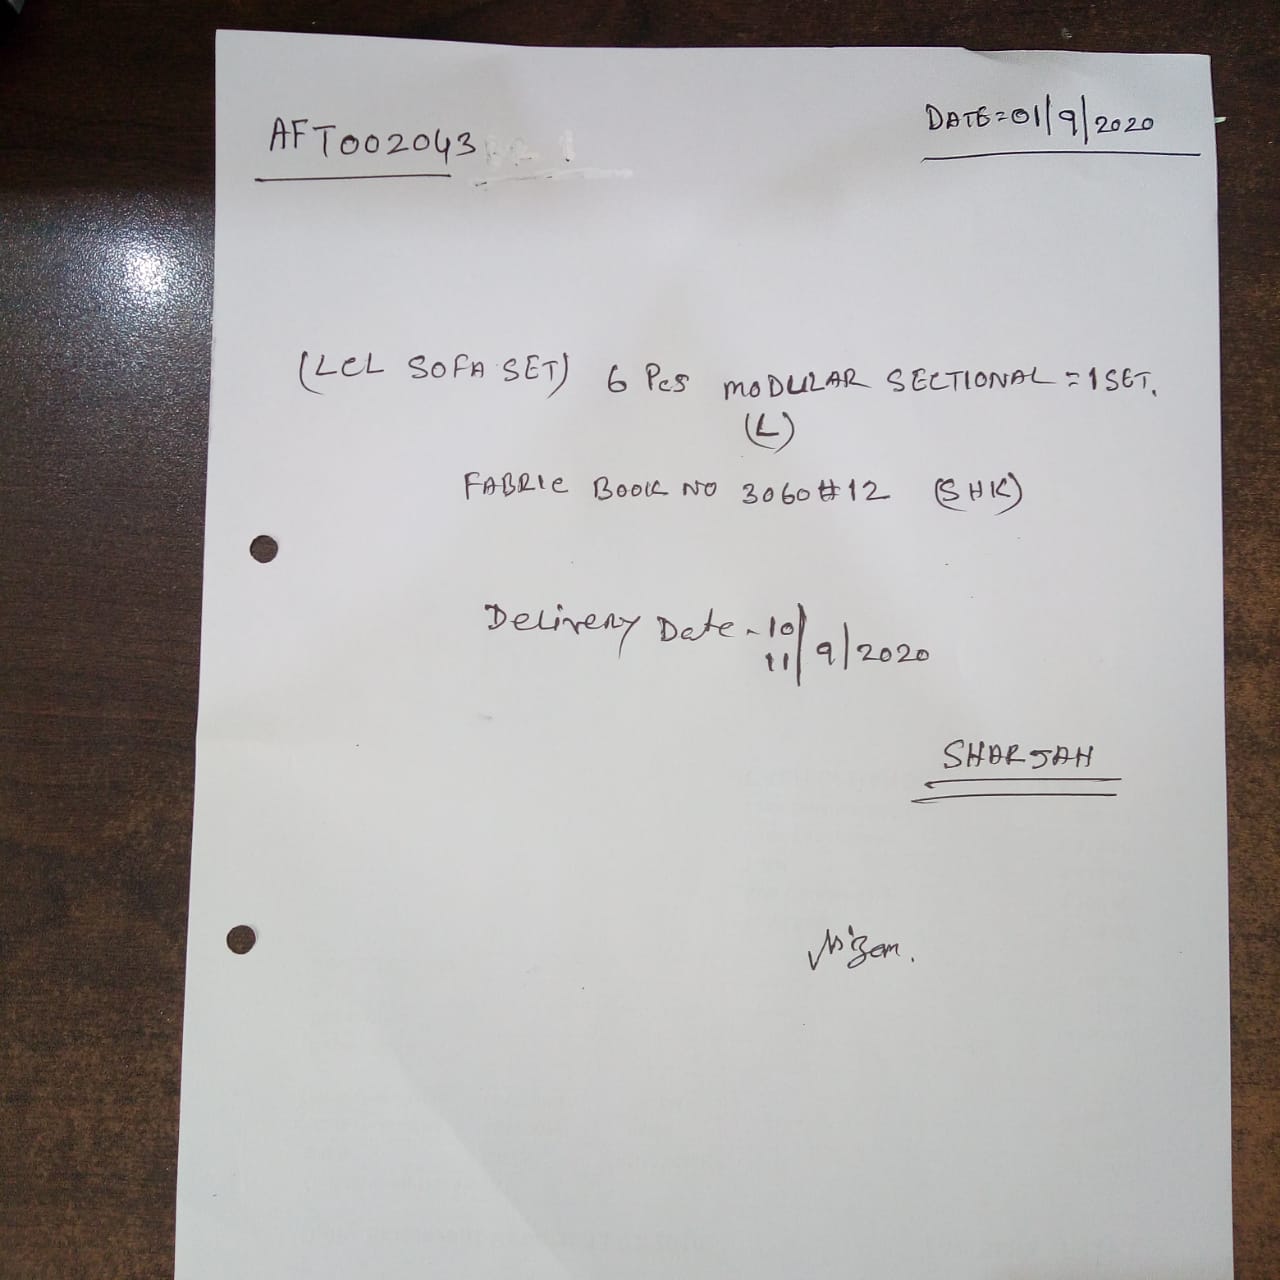 AFT002043
DATE=01/9/2020
(LCL SOFA SET) 6 Pcs MODULAR SECTIONAL = 1 SET.
(L)
FABRIC BOOK NO 3060#12 (SHK)
Delivery Date - 10/
11/9/2020
SHARJAH
Nizam.